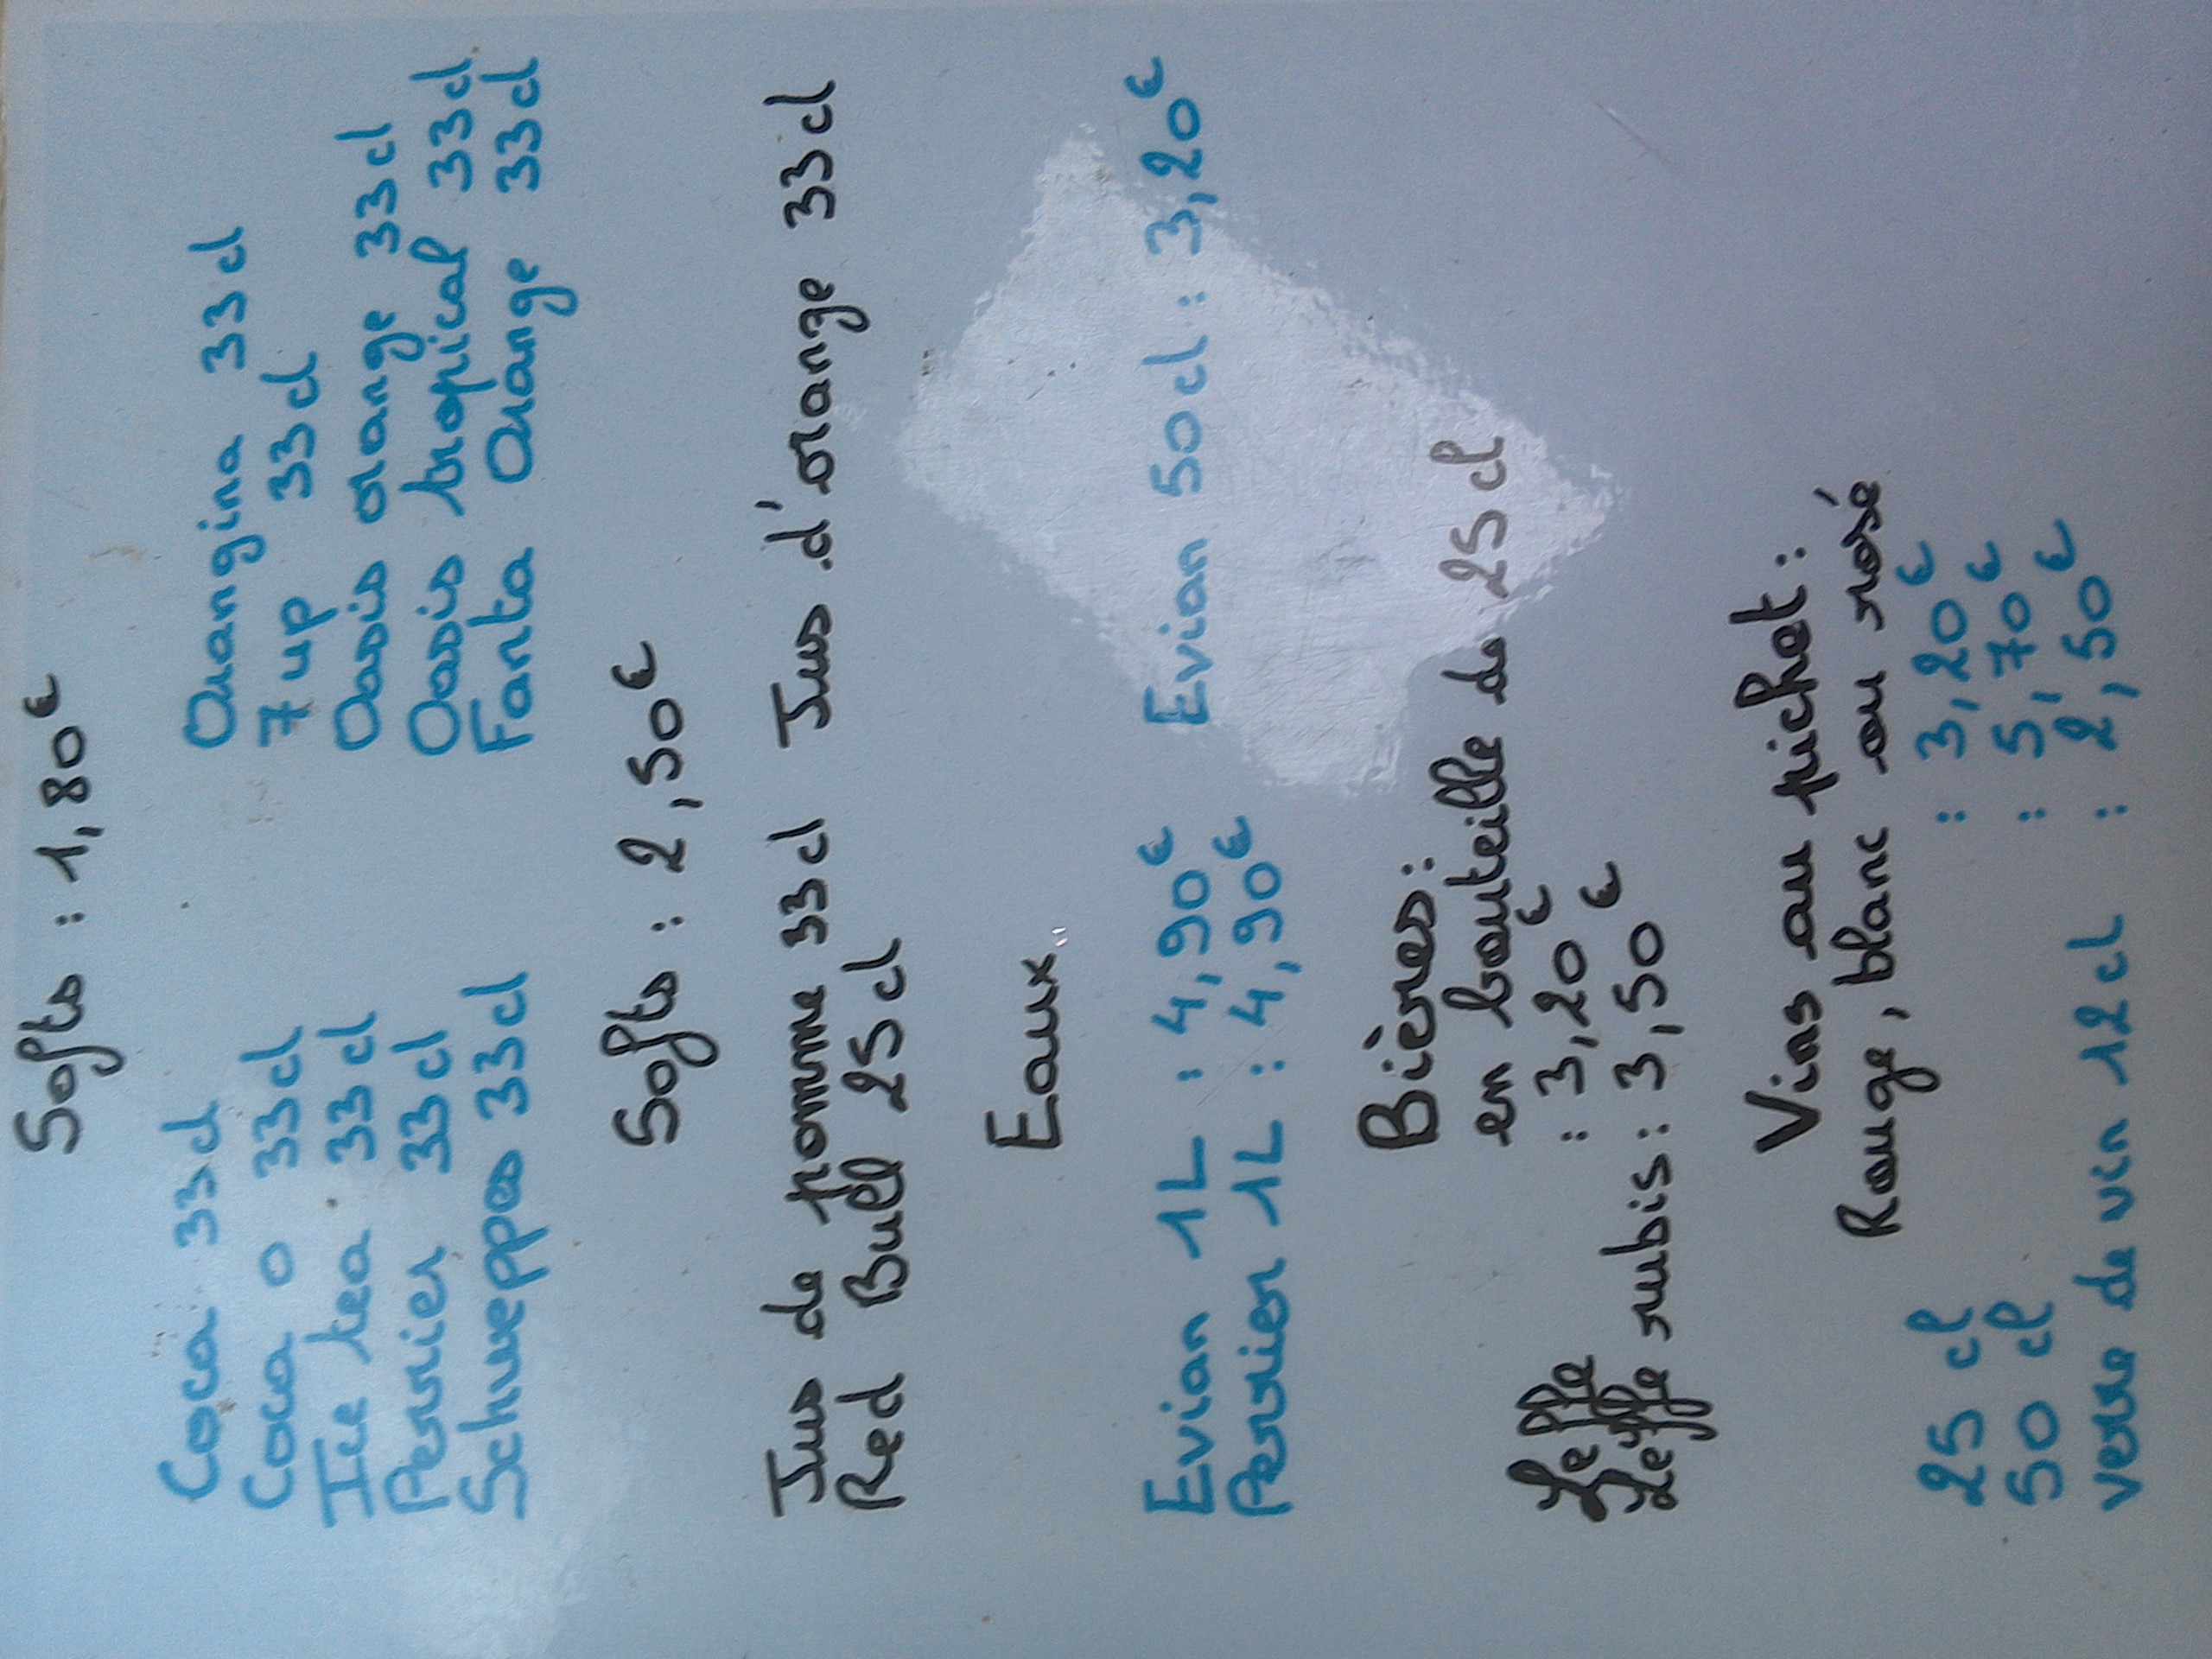 Softs : 1,80€
Coca 33cl Orangina 33cl
Coca 0 33cl 7 up 33cl
Ice tea 33cl Oasis orange 33cl
Perrier 33cl Oasis tropical 33cl
Schweppes 33cl Fanta Orange 33cl
Softs : 2,50€
Jus de pomme 33cl Jus d'orange 33cl
Red Bull 25cl
Eaux
Evian 1L : 4,90€ Evian 50cl : 3,20€
Perrier 1L : 4,90€
Bières:
en bouteille de 25cl
Leffe : 3,20€
Leffe rubis : 3,50€
Vins au pichet :
Rouge, blanc ou rosé
25 cl : 3,20€
50 cl : 5,70€
verre de vin 12cl : 2,50€